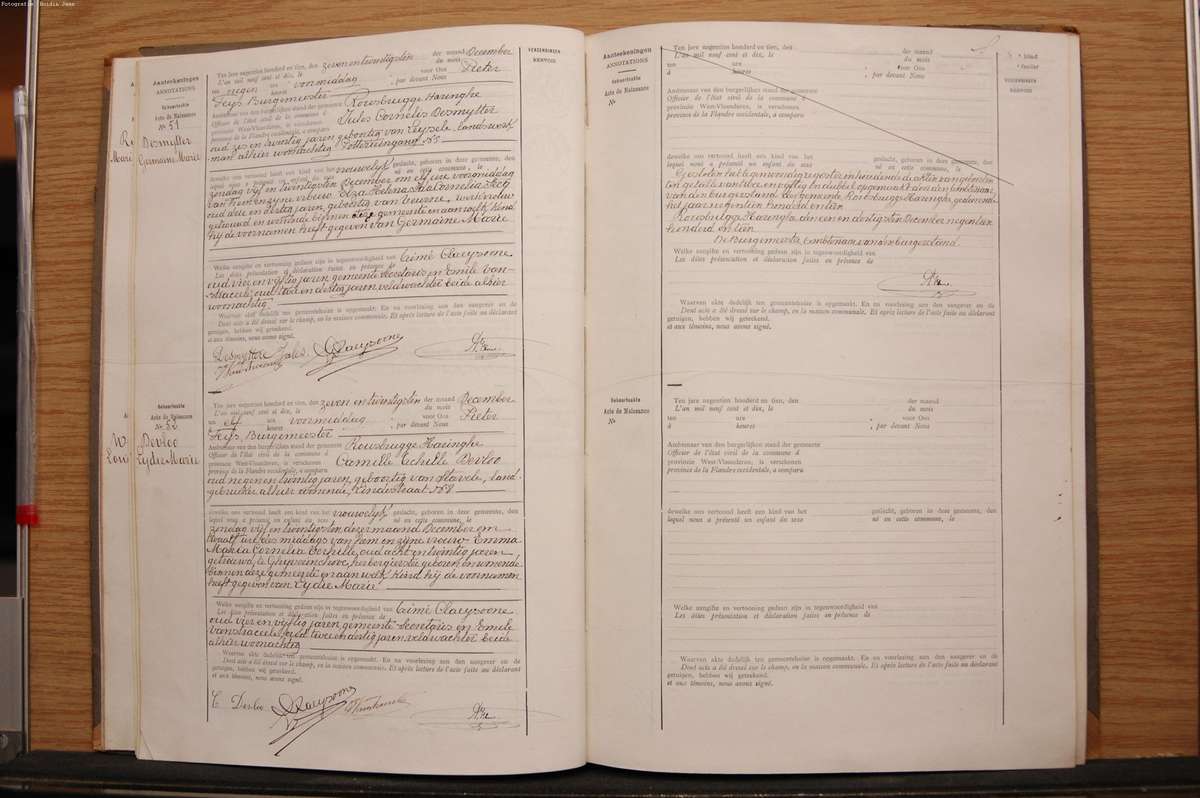 Fotografie: Boidin Jose
Aanteekeningen
ANNOTATIONS
Geboorteakte
Acte de Naissance
№ 51
Desmytter
Germaine Marie
VERZENDINGEN
RENVOIS
Ten jare negentien honderd en tien, den zeven en twintigsten der maand December
L'an mil neuf cent et dix, le du mois
ten negen ure voormiddag voor Ons Pieter
à heures , par devant Nous
Seys Burgemeester
Ambtenaar van den burgerlijken stand der gemeente Rousbrugge Haringhe
Officier de l'état civil de la commune d
provincie West-Vlaanderen, is verschenen Jules Cornelis Desmytter
province de la Flandre occidentale, a comparu
oud zes en twintig jaren geboortig van Leysele, landswerk-
man alhier woonachtig
dewelke ons vertoond heeft een kind van het vrouwelijk geslacht, geboren in deze gemeente, den
lequel nous a présenté un enfant du sexe né en cette commune, le
zondag vijf en twintigsten December om elf ure voormiddag
van hem en zijne vrouw Elza Helena
oud drie en dertig jaren geboortig van Veurne, werkvrouw
getrouwd en wonende binnen deze gemeente en aan welk kind
hij de voornamen heeft gegeven van Germaine Marie
Welke aangifte en vertooning gedaan zijn in tegenwoordigheid van Aimé Claeysoone
Les dites présentation et déclaration faites en présence de
oud vier en vijftig jaren gemeente secretaris en Emile van-
Isacele oud twee en dertig jaren veldwachter beide alhier
woonachtig
Waarvan akte dadelijk ten gemeentehuize is opgemaakt. En na voorlezing aan den aangever en de
Dont acte a été dressé sur le champ, en la maison communale. Et après lecture de l'acte faite au déclarant
getuigen, hebben wij geteekend.
et aux témoins, nous avons signé.
Desmyttere Jules Claeysoone
Geboorteakte
Acte de Naissance
№ 52
Devloo
Lydie Marie
Ten jare negentien honderd en tien, den zeven en twintigsten der maand December
L'an mil neuf cent et dix, le du mois
ten elf ure voormiddag voor Ons Pieter
à heures , par devant Nous
Seys Burgemeester
Ambtenaar van den burgerlijken stand der gemeente Rousbrugge Haringhe
Officier de l'état civil de la commune d
provincie West-Vlaanderen, is verschenen Camille Achille Devloo
province de la Flandre occidentale, a comparu
oud negen en twintig jaren, geboortig van Stavele, land-
gebruiker alhier wonende,
dewelke ons vertoond heeft een kind van het vrouwelijk geslacht, geboren in deze gemeente, den
lequel nous a présenté un enfant du sexe né en cette commune, le
zondag vijf en twintigsten dezer maand December om
twaalf ure des middags van hem en zijne vrouw Emma
Maria Cornelia oud acht en twintig jaren
getrouwd, te Ghyverinchove, herbergierster geboren en wonende
binnen deze gemeente en aan welk kind hij de voornamen
heeft gegeven van Lydie Marie
Welke aangifte en vertooning gedaan zijn in tegenwoordigheid van Aimé Claeysoone
Les dites présentation et déclaration faites en présence de
oud vier en vijftig jaren, gemeente secretaris en Emile
van Isacele oud twee en dertig jaren, veldwachter beide
alhier woonachtig
Waarvan akte dadelijk ten gemeentehuize is opgemaakt. En na voorlezing aan den aangever en de
Dont acte a été dressé sur le champ, en la maison communale. Et après lecture de l'acte faite au déclarant
getuigen, hebben wij geteekend.
et aux témoins, nous avons signé.
C Devloo Claeysoone
Aanteekeningen
ANNOTATIONS
Geboorteakte
Acte de Naissance
№
VERZENDINGEN
RENVOIS
Ten jare negentien honderd en tien, den der maand
L'an mil neuf cent et dix, le du mois
ten ure voor Ons
à heures , par devant Nous
Ambtenaar van den burgerlijken stand der gemeente
Officier de l'état civil de la commune d
provincie West-Vlaanderen, is verschenen
province de la Flandre occidentale, a comparu
dewelke ons vertoond heeft een kind van het geslacht, geboren in deze gemeente, den
lequel nous a présenté un enfant du sexe né en cette commune, le
Gesloten het tegenwoordig register inhoudende de akten van geboorten
ten getalle van twee en vijftig en dubbel opgemaakt door den ambtenaar
van den burgerstand der gemeente Rousbrugge Haringhe gedurende
het jaar negentien honderd en tien.
Rousbrugge Haringhe den een en dertigsten December negentien
honderd en tien
De Burgemeester Ambtenaar van den burgerstand.
Welke aangifte en vertooning gedaan zijn in tegenwoordigheid van
Les dites présentation et déclaration faites en présence de
Waarvan akte dadelijk ten gemeentehuize is opgemaakt. En na voorlezing aan den aangever en de
Dont acte a été dressé sur le champ, en la maison communale. Et après lecture de l'acte faite au déclarant
getuigen, hebben wij geteekend.
et aux témoins, nous avons signé.
Geboorteakte
Acte de Naissance
№
Ten jare negentien honderd en tien, den der maand
L'an mil neuf cent et dix, le du mois
ten ure voor Ons
à heures , par devant Nous
Ambtenaar van den burgerlijken stand der gemeente
Officier de l'état civil de la commune d
provincie West-Vlaanderen, is verschenen
province de la Flandre occidentale, a comparu
dewelke ons vertoond heeft een kind van het geslacht, geboren in deze gemeente, den
lequel nous a présenté un enfant du sexe né en cette commune, le
Welke aangifte en vertooning gedaan zijn in tegenwoordigheid van
Les dites présentation et déclaration faites en présence de
Waarvan akte dadelijk ten gemeentehuize is opgemaakt. En na voorlezing aan den aangever en de
Dont acte a été dressé sur le champ, en la maison communale. Et après lecture de l'acte faite au déclarant
getuigen, hebben wij geteekend.
et aux témoins, nous avons signé.